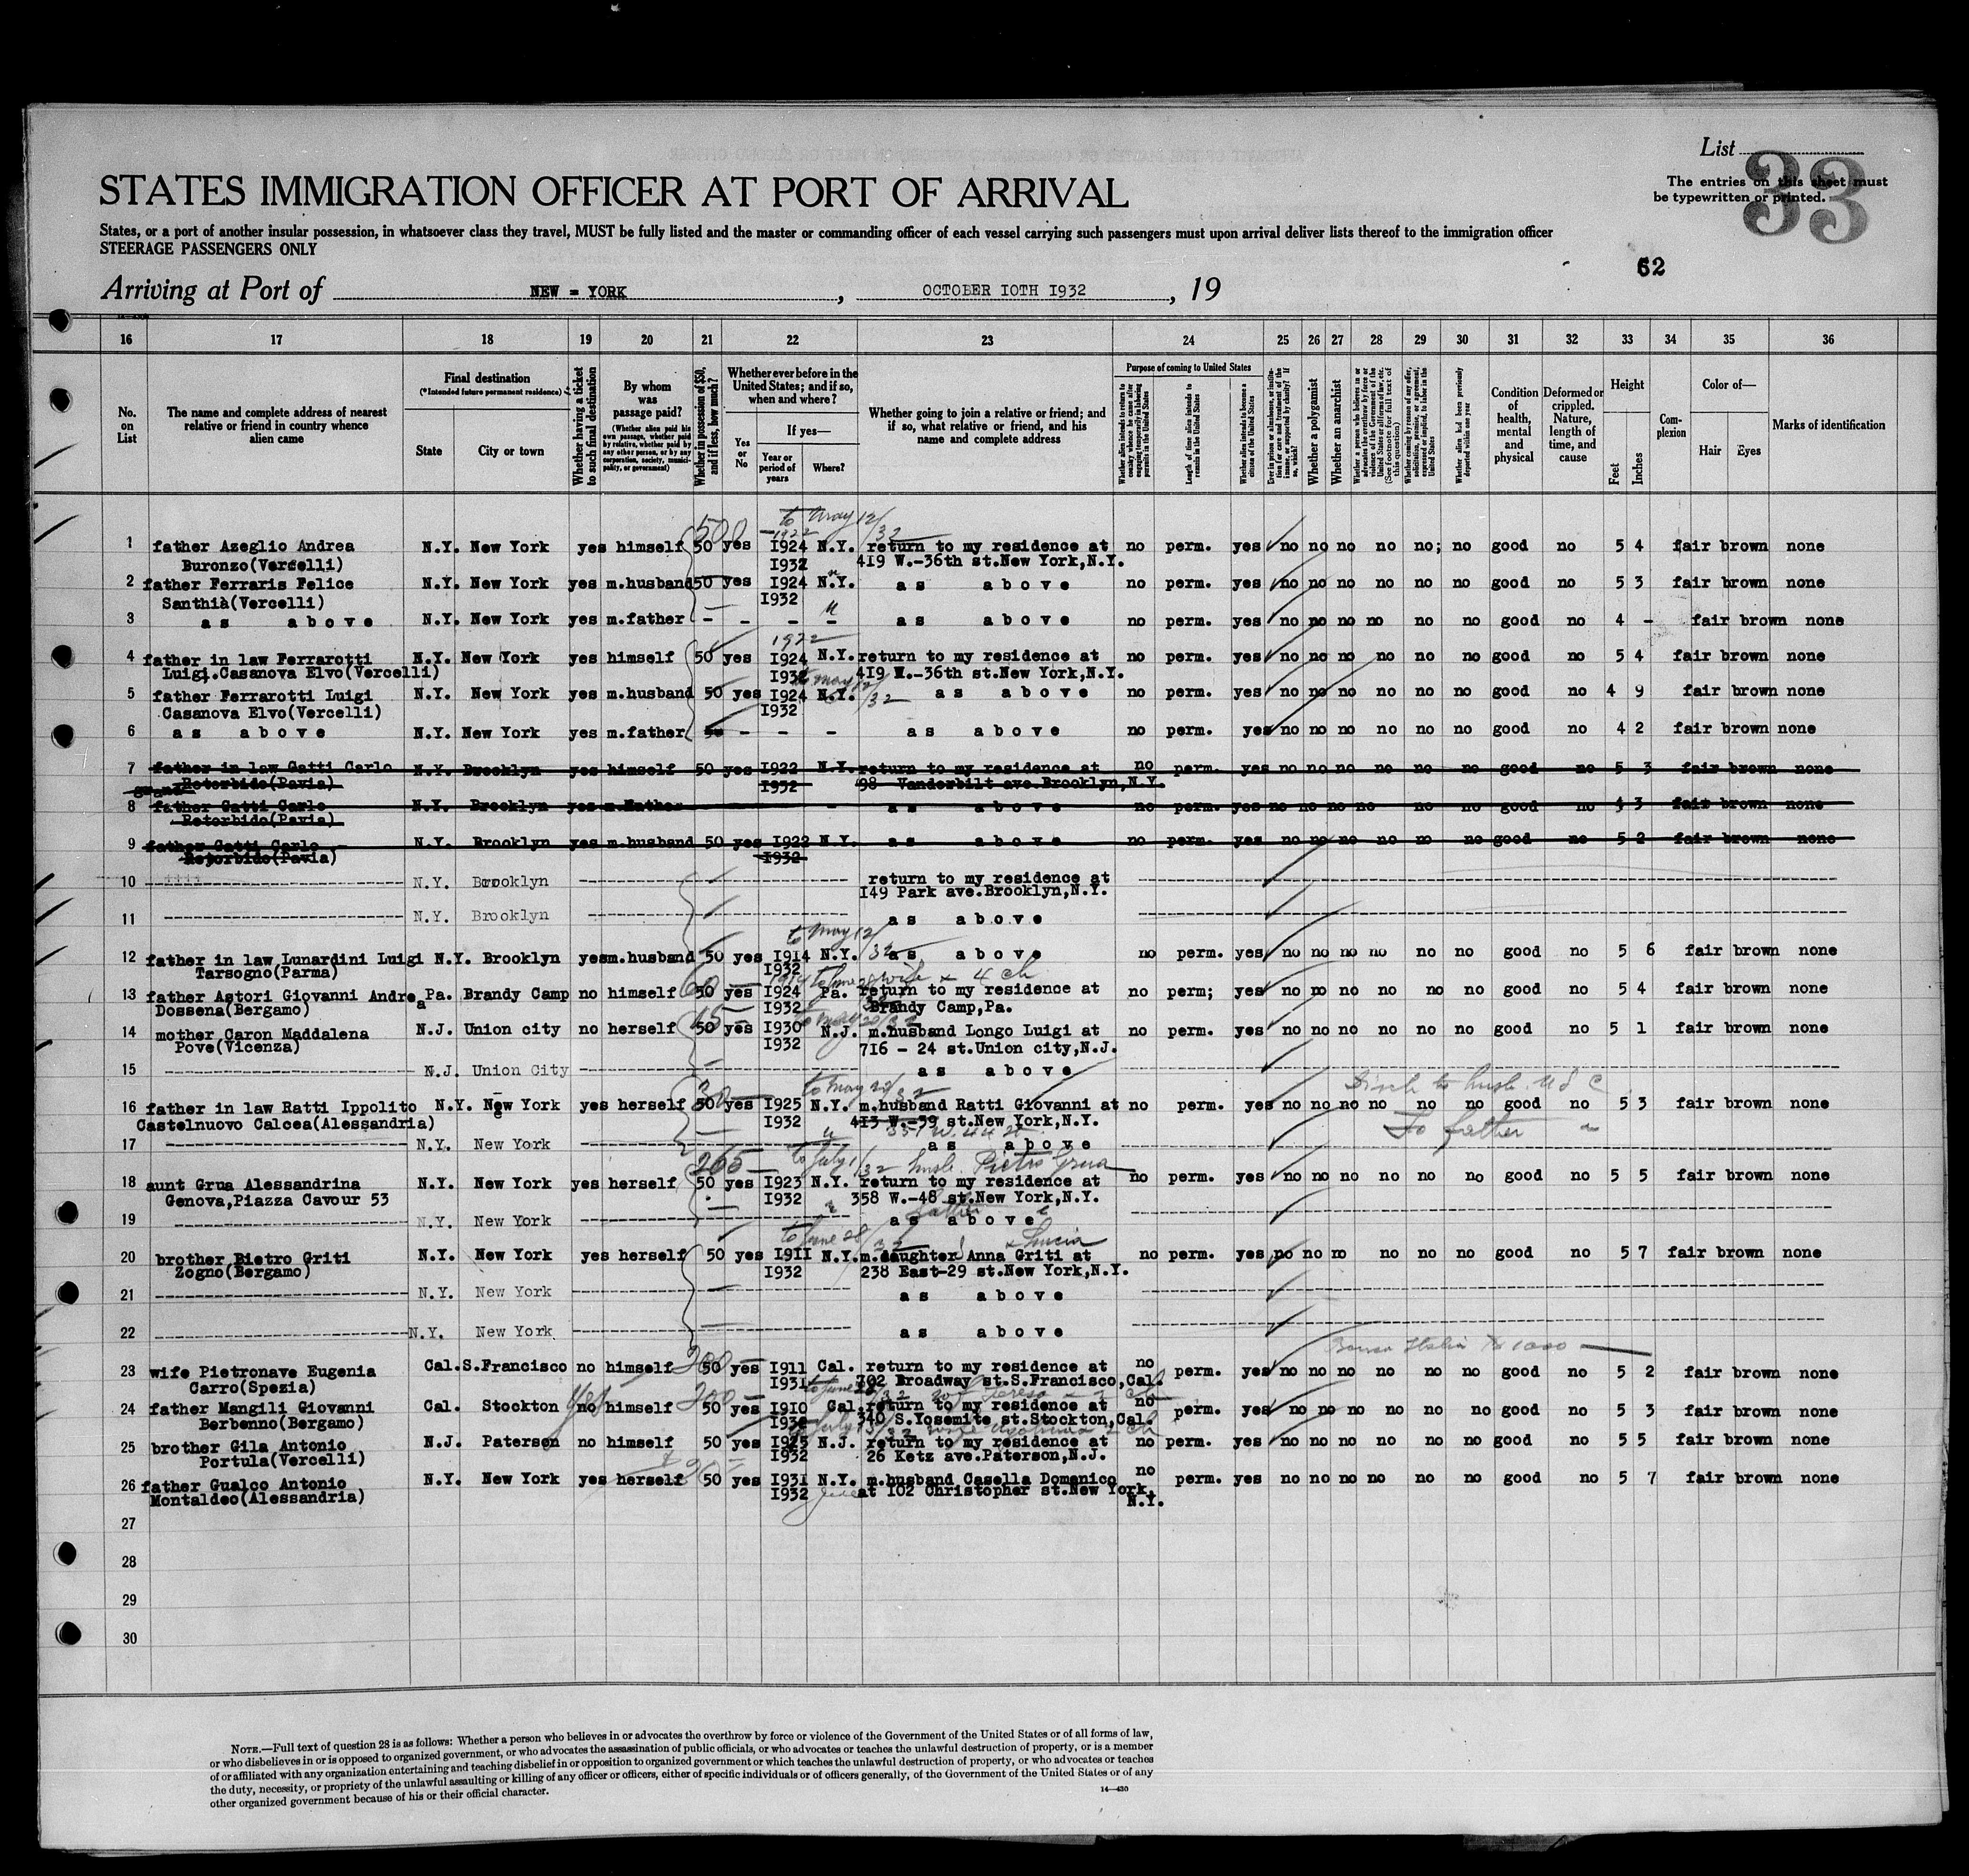 List
33
The entries on this sheet must
be typewritten or printed.
STATES IMMIGRATION OFFICER AT PORT OF ARRIVAL
States, or a port of another insular possession, in whatsoever class they travel, MUST be fully listed and the master or commanding officer of each vessel carrying such passengers must upon arrival deliver lists thereof to the immigration officer
STEERAGE PASSENGERS ONLY
62
Arriving at Port of NEW = YORK, OCTOBER IOTH I932, 19
16 17 18 19 20 21 22 23 24 25 26 27 28 29 30 31 32 33 34 35 36
No. on List
The name and complete address of nearest relative or friend in country whence alien came
Final destination
(*Intended future permanent residence)
State
City or town
Whether having a ticket to such final destination
By whom was passage paid?
(Whether alien paid his own passage, whether paid by relative, whether paid by any other person, or by any corporation, society, municipality, or government)
Whether in possession of $50, and if less, how much?
Whether ever before in the United States; and if so, when and where?
Yes or No
If yes—
Year or period of years
Where?
Whether going to join a relative or friend; and if so, what relative or friend, and his name and complete address
Purpose of coming to United States
Whether alien intends to return to country whence he came after engaging temporarily in laboring pursuits in the United States
Length of time alien intends to remain in the United States
Whether alien intends to become a citizen of the United States
Ever in prison or almshouse, or institution for care and treatment of the insane, or supported by charity? If so, which?
Whether a polygamist
Whether an anarchist
(See footnote for full text of this question)
Whether coming by reason of any offer, solicitation, promise, or agreement, expressed or implied, to labor in the United States
Whether alien had been previously deported within one year
Condition of health, mental and physical
Deformed or crippled. Nature, length of time, and cause
Height
Feet
Inches
Complexion
Color of—
Hair
Eyes
Marks of identification
to May 12/32
500
1922
1 father Azeglio Andrea N.Y. New York yes himself 50 yes I924 N.Y. return to my residence at no perm. yes no no no no no; no good no 5 4 fair brown none
Buronzo(Vercelli) I932 419 W.-36th st.New York,N.Y.
2 father Ferraris Felice N.Y. New York yes m.husband 50 yes I924 N.Y. as above no perm. yes no no no no no no good no 5 3 fair brown none
Santhià(Vercelli) I932
3 as above N.Y. New York yes m.father - - - - as above no perm. yes no no no no no no good no 4 - fair brown none
1922
4 father in law Ferrarotti N.Y. New York yes himself 50 yes I924 N.Y. return to my residence at no perm. yes no no no no no no good no 5 4 fair brown none
Luigi.Casanova Elvo(Vercelli) I932 419 W.-36th st.New York,N.Y.
to May 12/32
5 father Ferrarotti Luigi N.Y. New York yes m.husband 50 yes I924 N.Y. as above no perm. yes no no no no no no good no 4 9 fair brown none
Casanova Elvo(Vercelli) I932
6 as above N.Y. New York yes m.father - - - as above no perm. yes no no no no no no good no 4 2 fair brown none
7 father in law Gatti Carlo N.Y. Brooklyn yes himself 50 yes I922 N.Y. return to my residence at no perm. yes no no no no no no good no 5 3 fair brown none
Retorbido(Pavia) I932 98 Vanderbilt ave.Brooklyn,N.Y.
grand
8 father Gatti Carlo N.Y. Brooklyn yes m.father - as above no perm. yes no no no no no no good no 4 3 fair brown none
Retorbido(Pavia)
9 father Gatti Carlo N.Y. Brooklyn yes m.husband 50 yes I922 N.Y. as above no perm. yes no no no no no no good no 5 2 fair brown none
Retorbido(Pavia) I932
10 N.Y. Brooklyn return to my residence at
I49 Park ave.Brooklyn,N.Y.
11 N.Y. Brooklyn as above
to May 12/32
12 father in law Lunardini Luigi N.Y. Brooklyn yes m.husband 50 yes I9I4 N.Y. as above no perm. yes no no no no no no good no 5 6 fair brown none
Tarsogno(Parma) I932
60 wife & 4 ch
13 father Astori Giovanni Andrea Pa. Brandy Camp no himself 50 yes I924 Pa. return to my residence at no perm; yes no no no no no no good no 5 4 fair brown none
Dossena(Bergamo) I932 Brandy Camp,Pa.
15 to May 20/32
14 mother Caron Maddalena N.J. Union city no herself 50 yes I930 N.J. m.husband Longo Luigi at no perm. yes no no no no no no good no 5 1 fair brown none
Pove(Vicenza) I932 7I6 - 24 st.Union city,N.J.
15 N.J. Union City as above
30 to May 20/32 to husb. U S C
16 father in law Ratti Ippolito N.Y. New York yes herself 50 yes I925 N.Y. m.husband Ratti Giovanni at no perm. yes no no no no no no good no 5 3 fair brown none
Castelnuovo Calcea(Alessandria) I932 4I3 W.-39 st.New York,N.Y.
351 W. 44 st To father "
17 N.Y. New York as above
265 to July 1/32 husb. Pietro Grua
18 aunt Grua Alessandrina N.Y. New York yes herself 50 yes I923 N.Y. return to my residence at no perm. yes no no no no no no good no 5 5 fair brown none
Genova,Piazza Cavour 53 I932 358 W.-48 st.New York,N.Y.
father
19 N.Y. New York as above
to June 28/32 & Lucia
20 brother Pietro Griti N.Y. New York yes herself 50 yes I9II N.Y. m.daughter Anna Griti at no perm. yes no no no no no no good no 5 7 fair brown none
Zogno(Bergamo) I932 238 East-29 st.New York,N.Y.
21 N.Y. New York as above
22 N.Y. New York as above
200 Banca Italia 1000
23 wife Pietronave Eugenia Cal. S.Francisco no himself 50 yes I9II Cal. return to my residence at no perm. yes no no no no no no good no 5 2 fair brown none
Carro(Spezia) I93I 702 Broadway st.S.Francisco,Cal.
yes 200 to June 28/32 wf Teresa
24 father Mangili Giovanni Cal. Stockton no himself 50 yes I9I0 Cal. return to my residence at no perm. yes no no no no no no good no 5 3 fair brown none
Berbenno(Bergamo) I932 340 S.Yosemite st.Stockton,Cal.
to July 15/32 wife 2 ch
25 brother Gila Antonio N.J. Paterson no himself 50 yes I925 N.J. return to my residence at no perm. yes no no no no no no good no 5 5 fair brown none
Portula(Vercelli) I932 26 Ketz ave.Paterson,N.J.
26 father Gualco Antonio N.Y. New York yes herself 50 yes I93I N.Y. m.husband Casella Domenico no perm. yes no no no no no no good no 5 7 fair brown none
Montaldeo(Alessandria) I932 at I02 Christopher st.New York,
N.Y.
27
28
29
30
NOTE.—Full text of question 28 is as follows: Whether a person who believes in or advocates the overthrow by force or violence of the Government of the United States or of all forms of law,
or who disbelieves in or is opposed to organized government, or who advocates the assassination of public officials, or who advocates or teaches the unlawful destruction of property, or is a member
of or affiliated with any organization entertaining and teaching disbelief in or opposition to organized government or which teaches the unlawful destruction of property, or who advocates or teaches
the duty, necessity, or propriety of the unlawful assaulting or killing of any officer or officers, either of specific individuals or of officers generally, of the Government of the United States or of any
other organized government because of his or their official character.
14—430